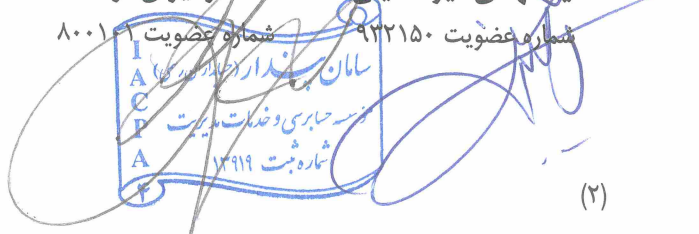 شماره عضویت ۹۳۲۱۵۰
شماره عضویت ۸۰۰۱۰۱
IACPA
سامان پندار (حسابداران رسمی)
موسسه حسابرسی و خدمات مدیریت
شماره ثبت ۱۳۹۱۹
۴
(۲)